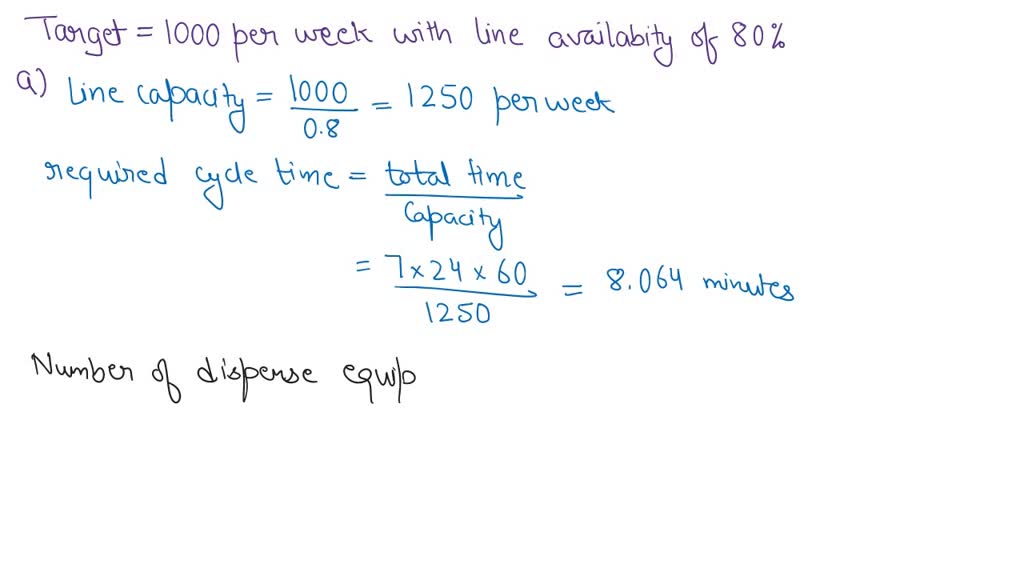 Target = 1000 per week with line availabity of 80%
a) Line capacity = 1000 / 0.8 = 1250 per week
required cycle time = total time / Capacity
= 7 x 24 x 60 / 1250 = 8.064 minutes
Number of disperse equip